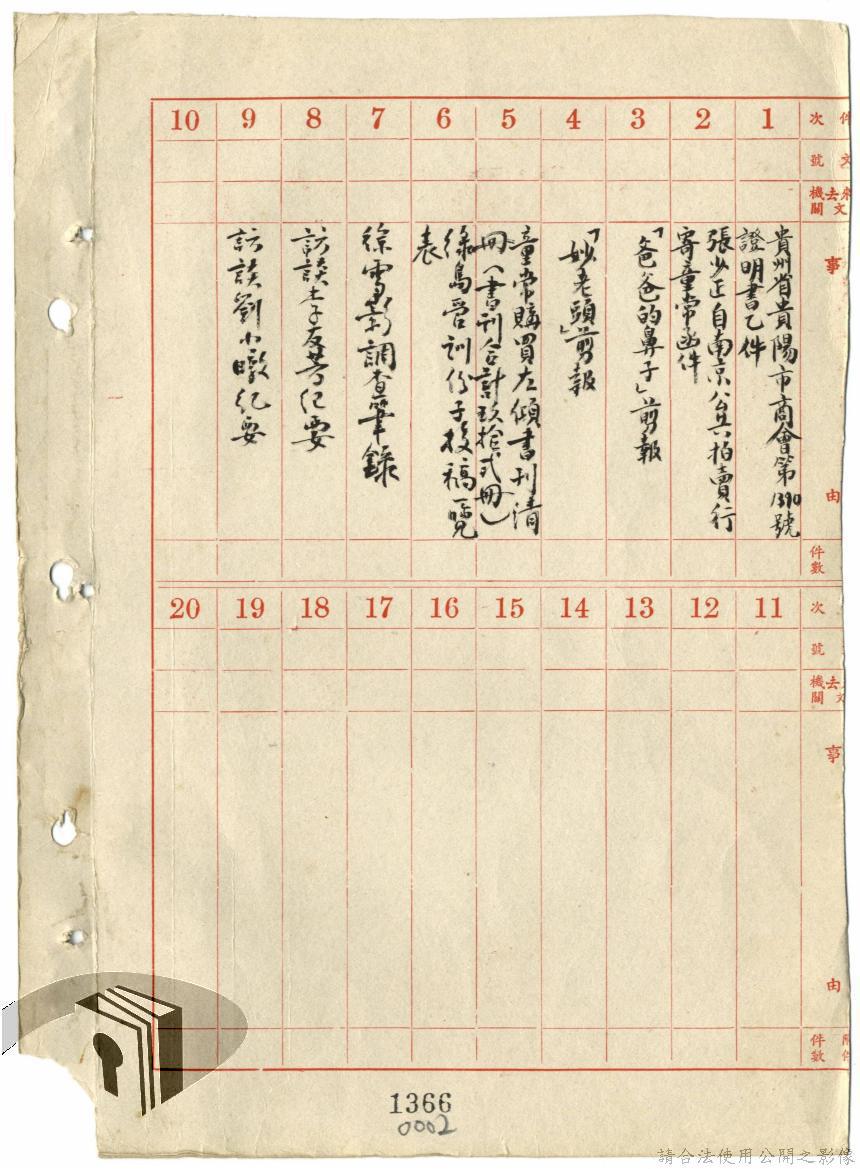 件次 1 2 3 4 5 6 7 8 9 10
文號
來去文機關
事由
貴州省貴陽市商會第1390號
證明書乙件
張少正自南京公共拍賣行
寄童常函件
「爸爸的鼻子」剪報
「妙老頭」剪報
童常購買左傾書刊清
冊(書刊合計玖拾弍冊)
綠島受訓份子投稿一覽
表
徐雪影調查筆錄
訪談李友芳紀要
訪談劉小暾紀要
件數
次 11 12 13 14 15 16 17 18 19 20
號
去文機關
事由
附件
件數
1366
0002
請合法使用公開之影像